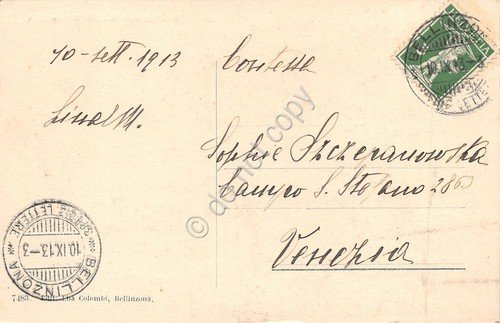 10 - sett. 1913
Contessa
Sophie Szczeranowska
Campo S. Stefano 2803
Venezia
HELVETIA
BELLINZONA
10.IX.13.-3
LETTERE
BELLINZONA
10.IX.13.-3
LETTERE
do not copy
7483 Edit. Elia Colombi, Bellinzona.